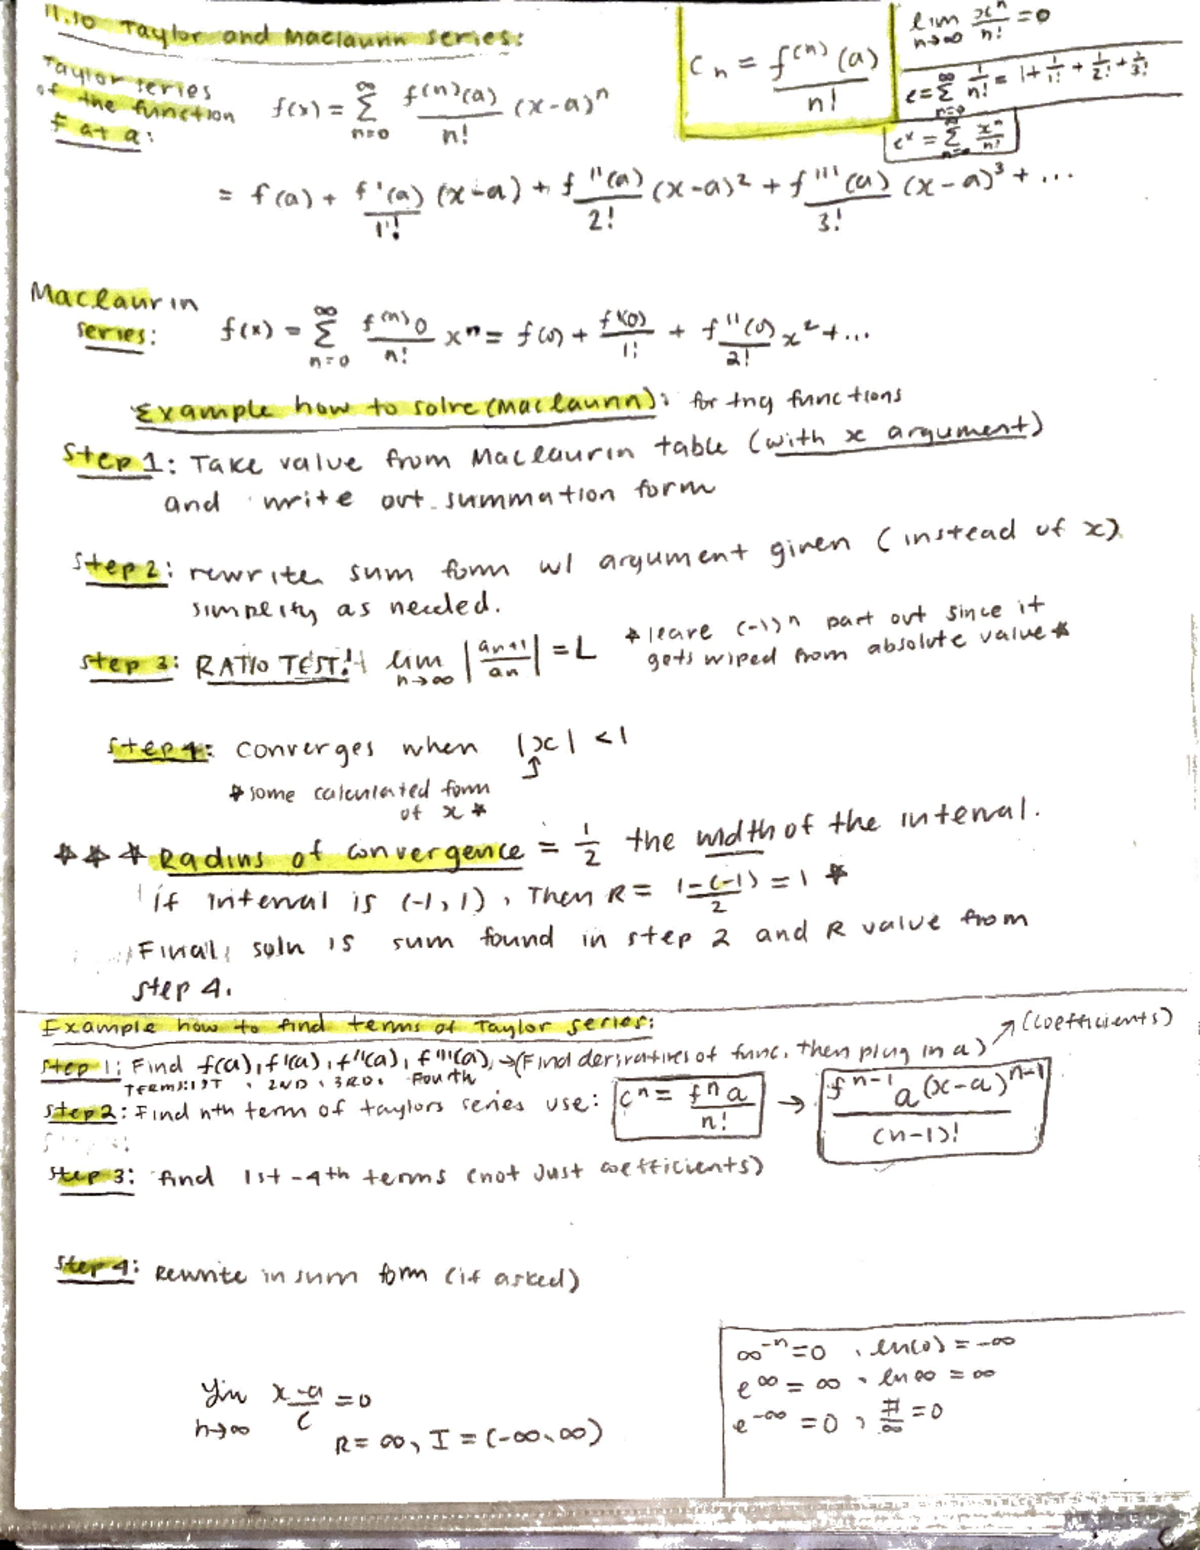 11.10 Taylor and Maclaurin series:
Taylor series of the function f at a: f(x) = ∞ Σ n=0 f(n)(a)/n! (x-a)ⁿ
Cn = f(n)(a)/n!
lim n→∞ xⁿ/n! = 0
e = ∞ Σ n=0 1/n! = 1 + 1/1! + 1/2! + 1/3!
eˣ = ∞ Σ n=0 xⁿ/n!
= f(a) + f'(a)/1! (x-a) + f''(a)/2! (x-a)² + f'''(a)/3! (x-a)³ + ...
Maclaurin series: f(x) = ∞ Σ n=0 f(n)0/n! xⁿ = f(0) + f'(0)/1! + f''(0)/2! x² + ...
Example how to solve (Maclaurin): for trig functions
Step 1: Take value from Maclaurin table (with x argument)
and write out summation form
Step 2: rewrite sum form w/ argument given (instead of x)
simplify as needed.
Step 3: RATIO TEST! lim n→∞ |an+1/an| = L *leave (-1)ⁿ part out since it
gets wiped from absolute value*
Step 4: converges when |x| < 1
*some calculated form
of x*
*** Radius of convergence = 1/2 the width of the interval.
if interval is (-1, 1), Then R = 1-(-1)/2 = 1 *
Final soln is sum found in step 2 and R value from
step 4.
Example how to find terms of Taylor series:
(coefficients)
Step 1: Find f(a), f'(a), f''(a), f'''(a), → (Find derivatives of func, then plug in a)
TERMS: 1ST, 2ND, 3RD, Fourth
Step 2: Find nth term of taylors series use: cⁿ = fⁿa/n! → fⁿ⁻¹a(x-a)ⁿ⁻¹/(n-1)!
Step 3: find 1st-4th terms (not just coefficients)
Step 4: Rewrite in sum form (if asked)
∞⁻ⁿ = 0, ln(0) = -∞
e^∞ = ∞, ln ∞ = ∞
e^-∞ = 0, #/∞ = 0
lim n→∞ x-a/c = 0
R = ∞, I = (-∞, ∞)